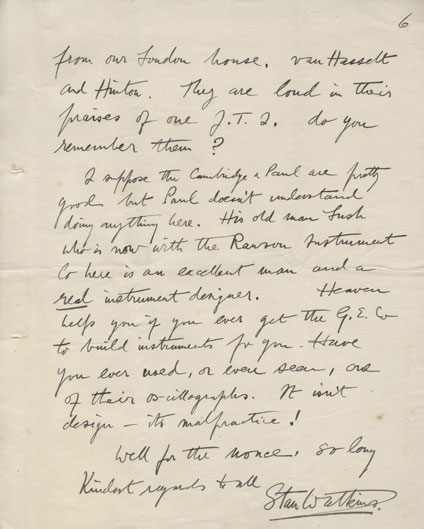 6
from our London house, van Hasselt
and Hinton. They are loud in their
praises of one J.T.I. do you
remember them?
I suppose the Cambridge & Paul are pretty
good but Paul doesn't understand
doing anything here. His old man
who is now with the Rawson Instrument
Co here is an excellent man and a
real instrument designer. Heaven
helps you if you ever get the G.E. Co
to build instruments for you. Have
you ever used, or even seen, one
of their os-cillographs. It isn't
design – its malpractice!
Well for the nonce, so long
Kindest regards to all
Stan Watkins.